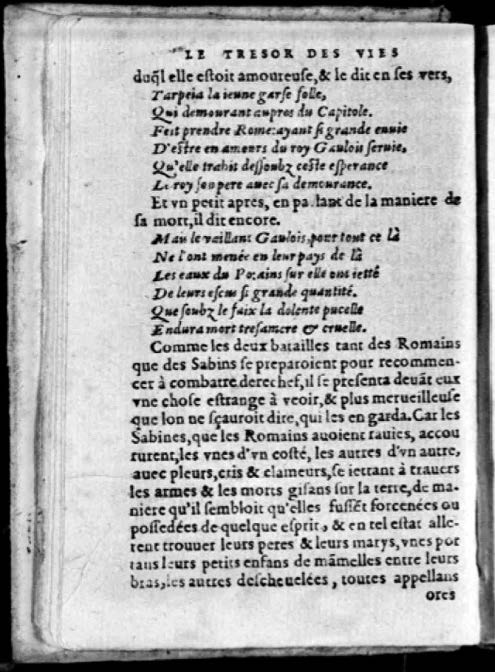 LE TRESOR DES VIES
duq̃l elle estoit amoureuse,& le dit en ses vers,
Tarpeia la ieune garse folle,
Qui demourant aupres du Capitole.
Feit prendre Rome: ayant si grande enuie
D'estre en amours du roy Gaulois seruie,
Qu'elle trahit dessoubz ceste esperance
Le roy son pere auec sa demourance.
Et vn petit aprés, en parlant de la maniere de
sa mort, il dit encore.
Mais le vaillant Gaulois, pour tout ce là
Ne l'ont menée en leur pays de là
Les eaux du Po: ains sur elle ont ietté
De leurs escus si grande quantité.
Que soubz le faix la dolente pucelle
Endura mort tresamere & cruelle.
Comme les deux batailles tant des Romains
que des Sabins se preparoient pour recommen-
cer à combatre derechef, il se presenta deuāt eux
vne chose estrange à veoir,& plus merueilleuse
que lon ne sçauroit dire, qui les en garda. Car les
Sabines, que les Romains auoient rauies, accou
rurent, les vnes d'vn costé, les autres d'vn autre,
auec pleurs, cris & clameurs, se iettant à trauers
les armes & les morts gisans sur la terre, de ma-
niere qu'il sembloit qu'elles fussēt forcenées ou
possedées de quelque esprit, & en tel estat alle-
rent trouuer leurs peres & leurs marys, vnes por
tans leurs petits enfans de māmelles entre leurs
bras, les autres descheuelées, toutes appellans
ores